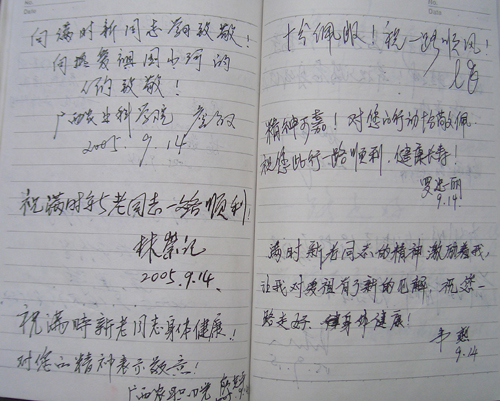 向满时新同志学习致敬!
向热爱祖国山河的
人们致敬!
广西农业科学院
2005.9.14
祝满时新老同志一路顺利!
林荣记
2005.9.14.
祝满時新老同志身体健康!
对您的精神表示敬意!
广西农职院
十分佩服!祝一路顺风!
精神可嘉!对您的行动十分敬佩
祝您此行一路顺利、健康长寿!
罗忠丽
9.14
满时新老同志的精神激励着我,
让我对爱祖有了新的见解,祝您一
路走好、身体健康!
韦
9.14